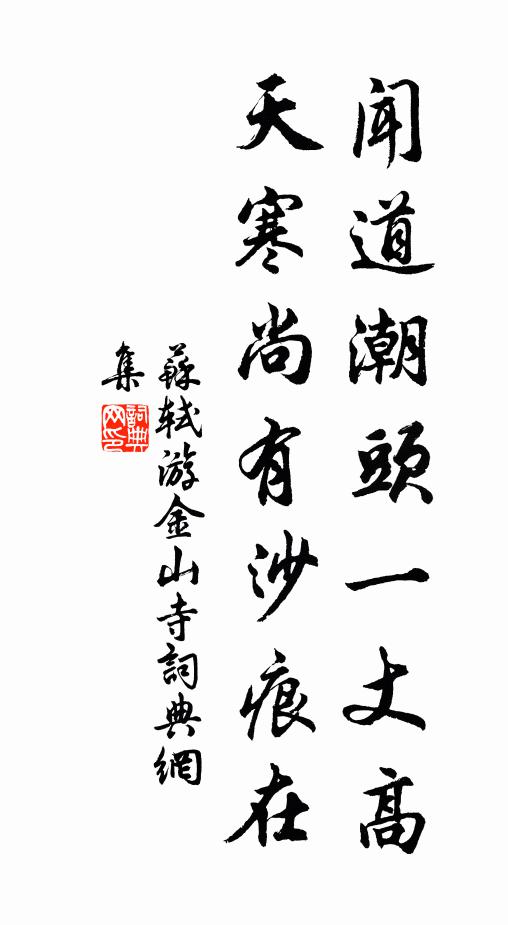 聞道潮頭一丈高
天寒尚有沙痕在
蘇軾游金山寺詞典網
集
詞典
网印